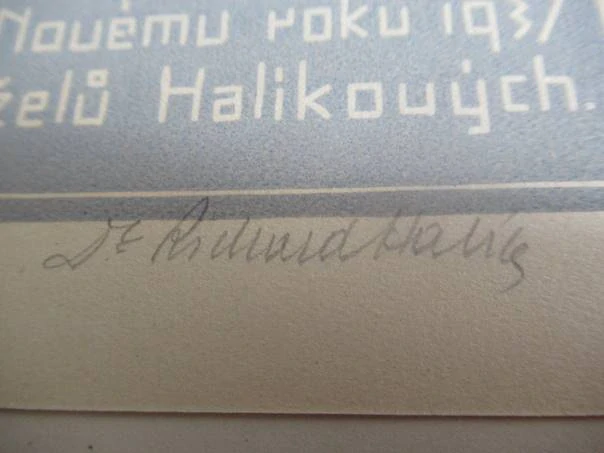 Novému roku 1937
želů Halikových.
Dr Richard Halík